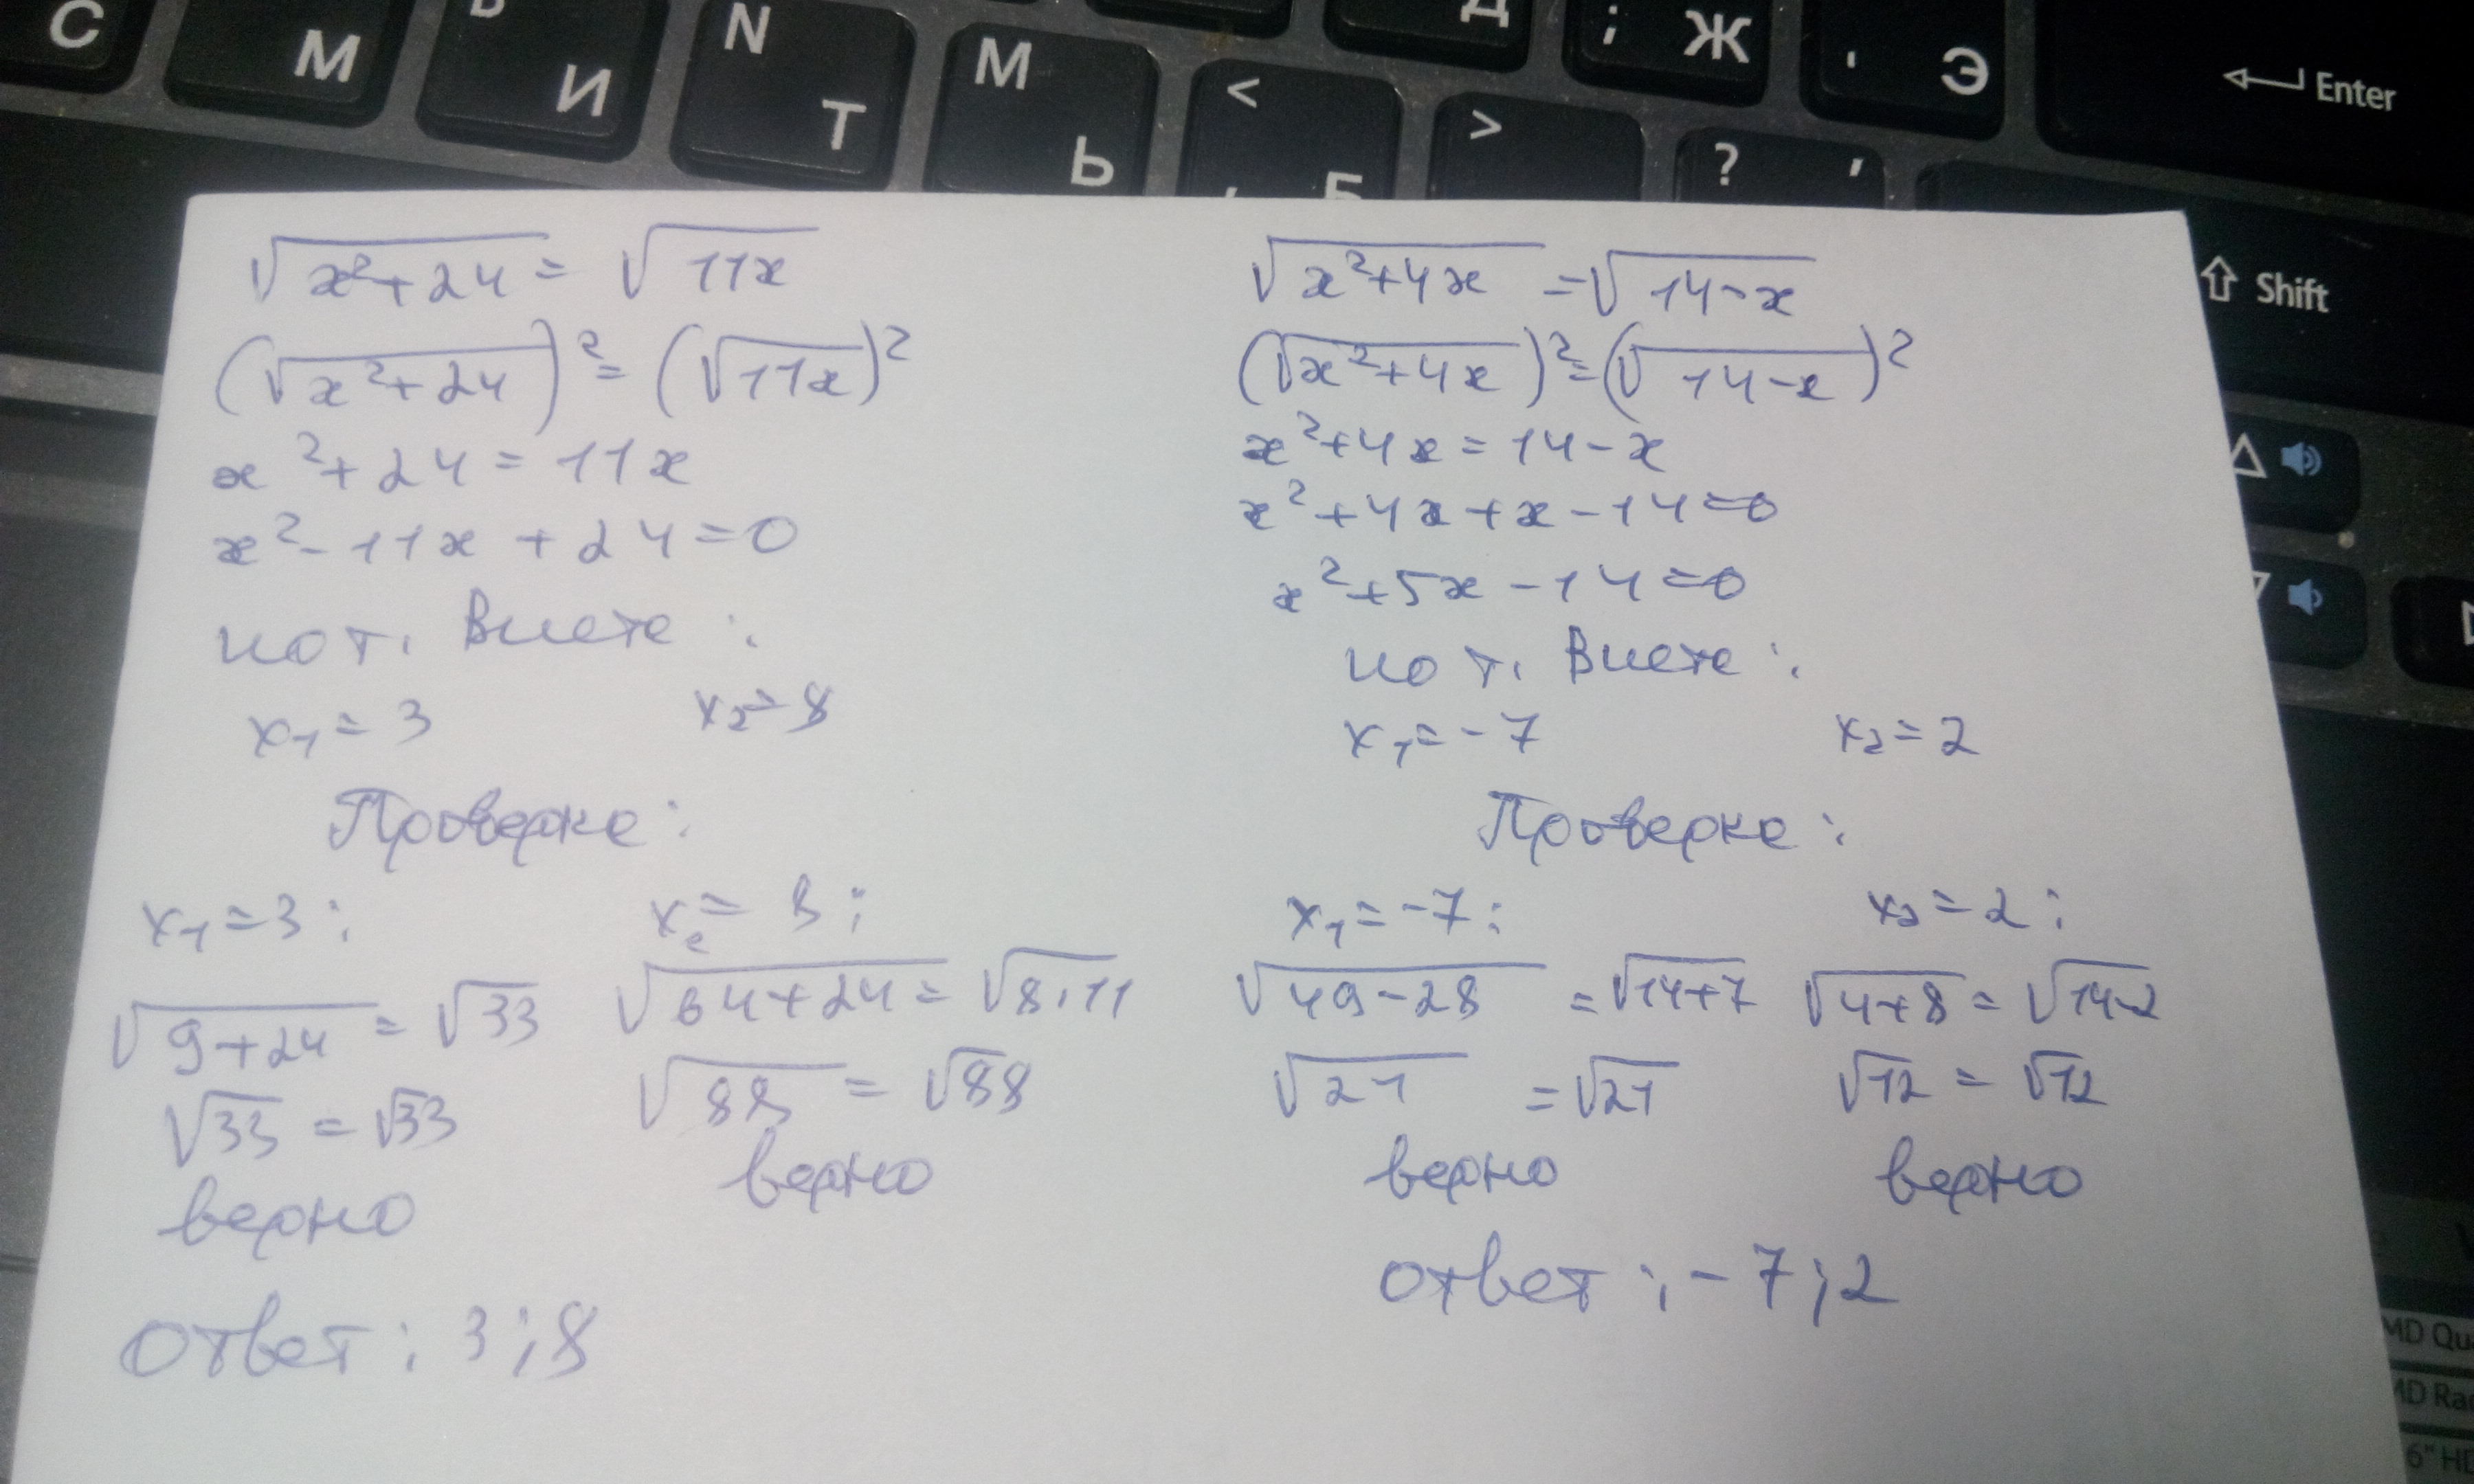 С
М
Ь
И
N
Т
М
Ь
<
Б
Д
>
; Ж
? ,
' Э
Enter
Shift
√x²+24 = √11x
(√x²+24)² = (√11x)²
x²+24 = 11x
x²-11x+24=0
по т. Виета:
x₁=3 x₂=8
Проверка:
x₁=3: x₂=8:
√9+24 = √33 √64+24 = √8·11
√33 = √33 √88 = √88
верно верно
Ответ: 3;8
√x²+4x = √14-x
(√x²+4x)² = (√14-x)²
x²+4x=14-x
x²+4x+x-14=0
x²+5x-14=0
по т. Виета:
x₁=-7 x₂=2
Проверка:
x₁=-7: x₂=2:
√49-28 = √14+7 √4+8 = √14-2
√21 = √21 √12 = √12
верно верно
Ответ: -7;2
MD Qu
MD Ra
6" H